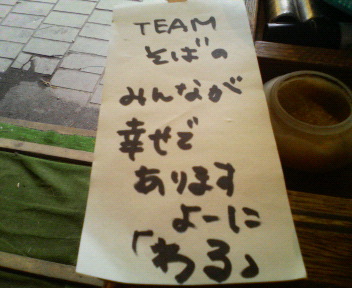 TEAM
そばの
みんなが
幸せで
あります
よーに
「わる」